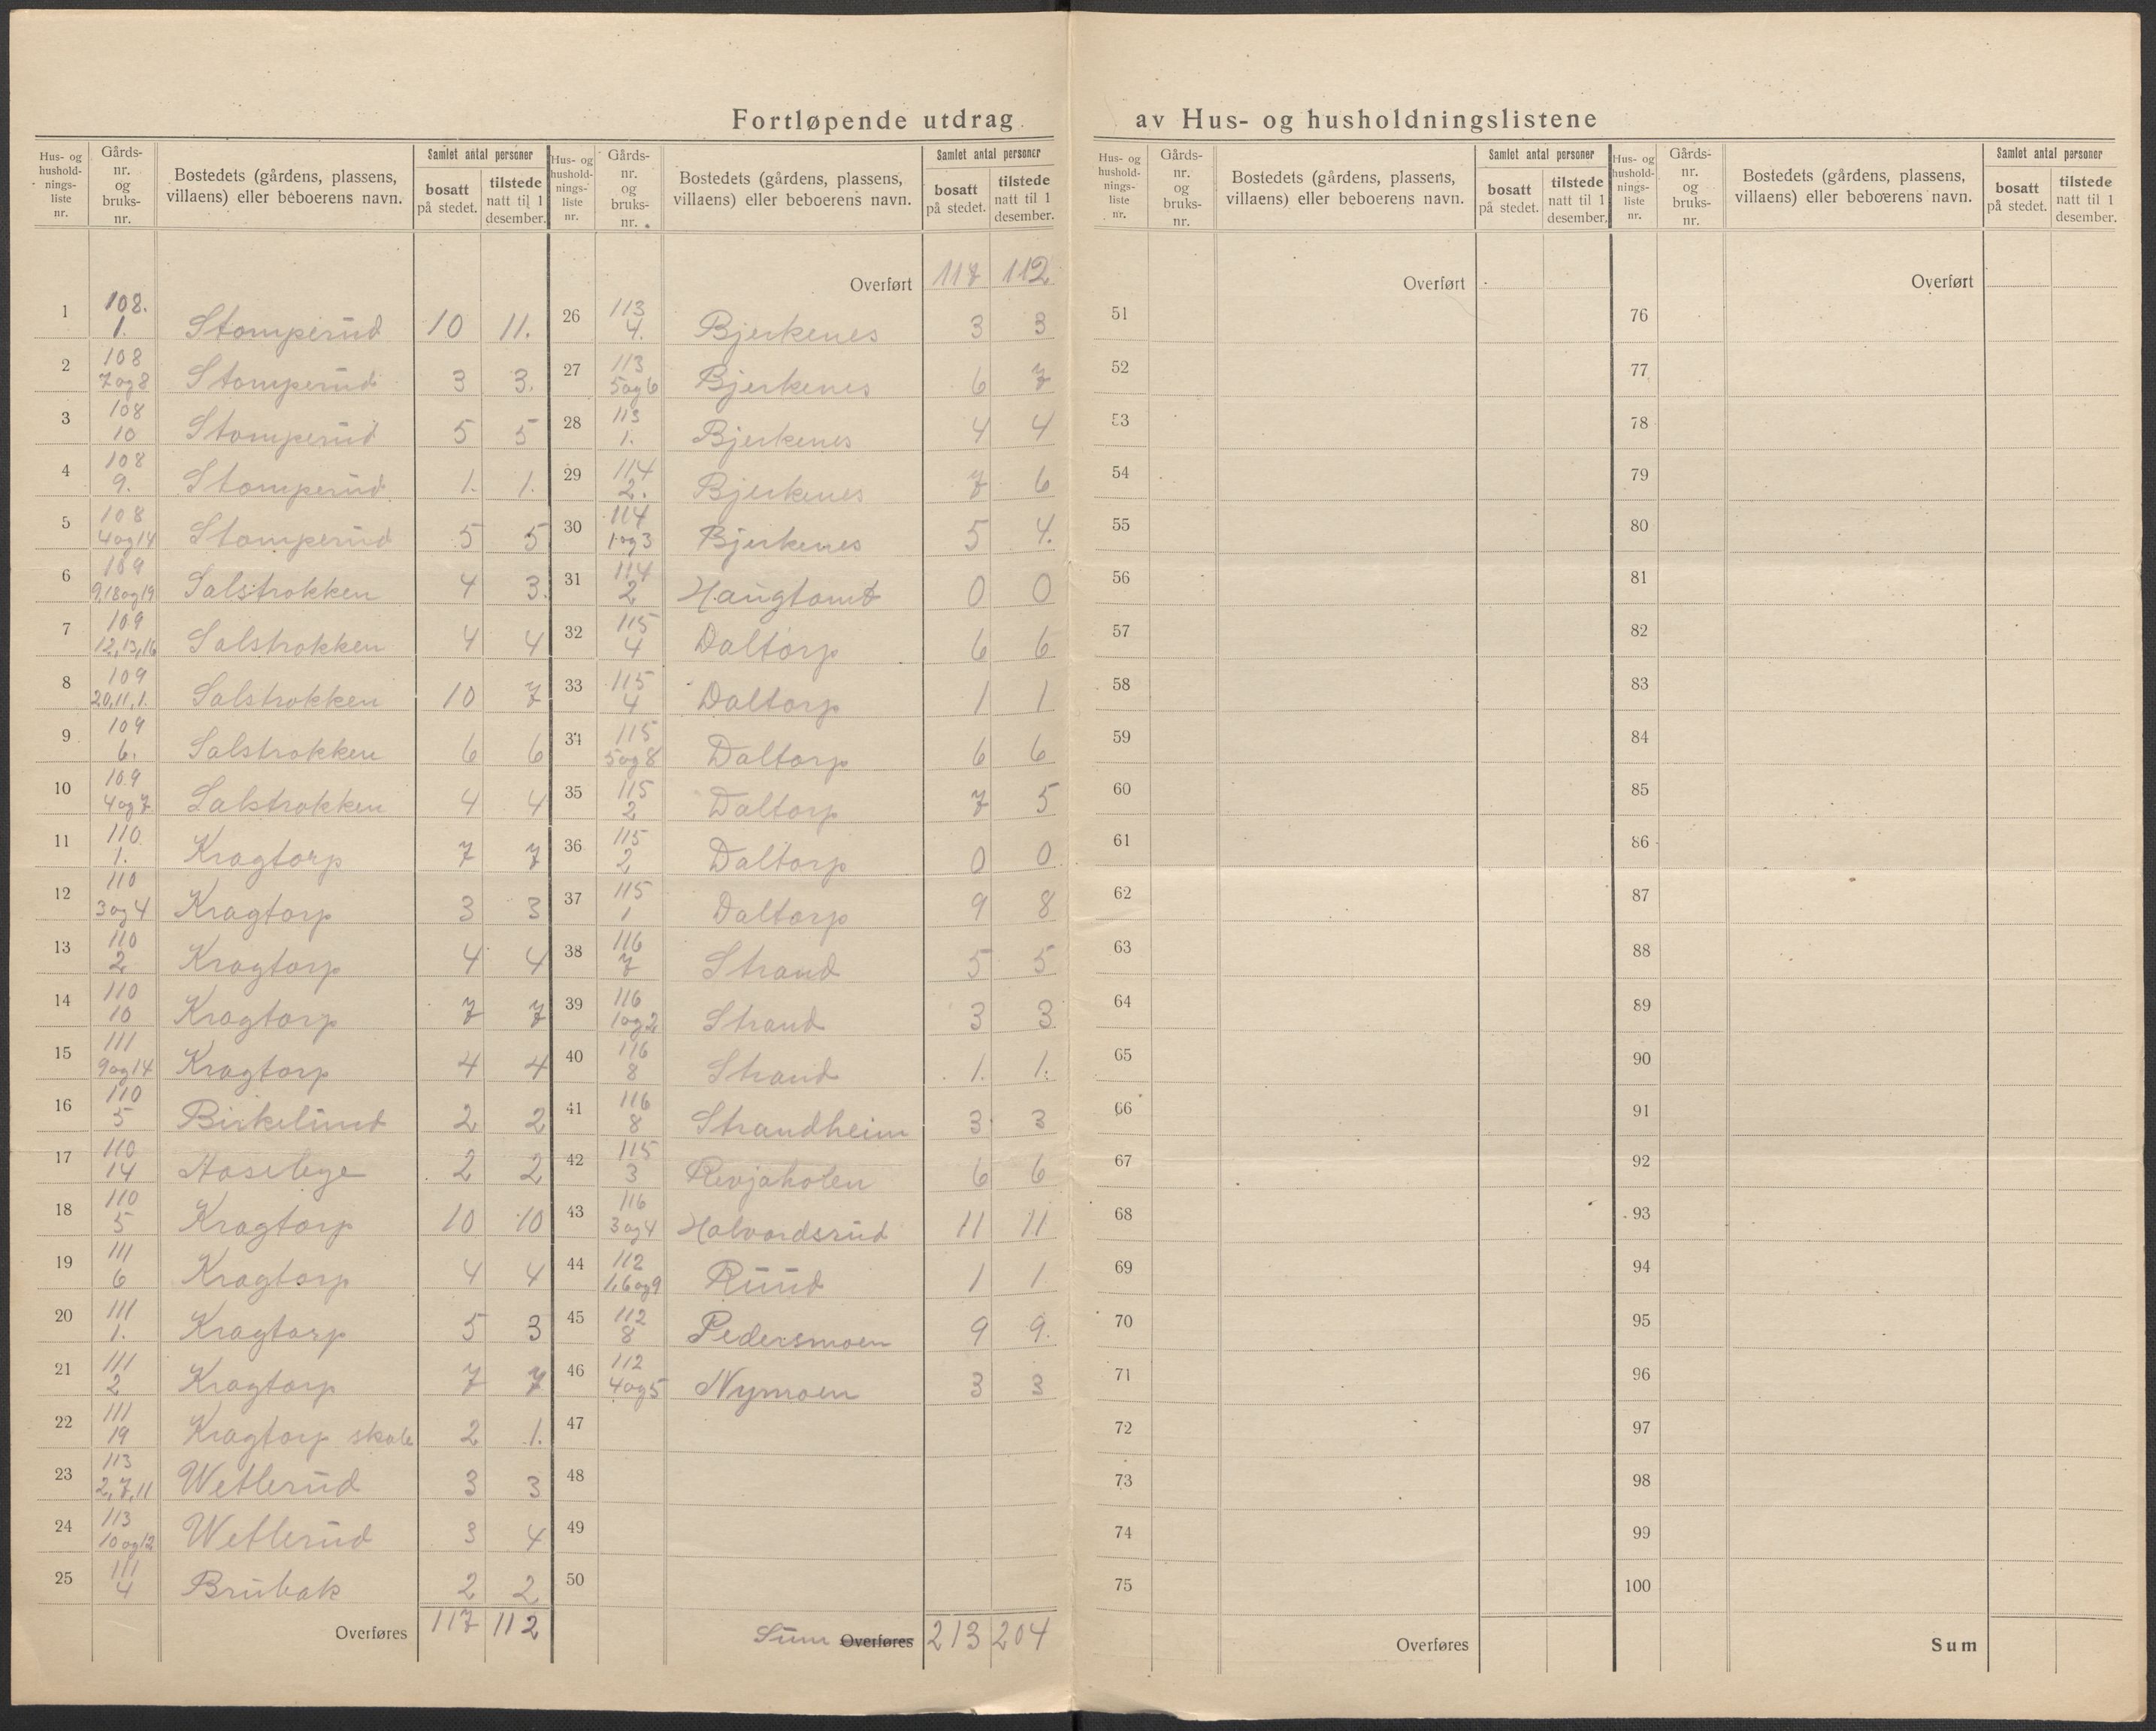 Fortløpende utdrag av Hus- og husholdningslistene
Hus- og hushold- nings- liste nr. | Gårds- nr. og bruks- nr. | Bostedets (gårdens, plassens, villaens) eller beboerens navn. | Samlet antal personer | bosatt på stedet. | tilstede natt til 1 desember.
1 | 108. 1. | Stomperud | 10 | 11.
2 | 108 7 og 8 | Stomperud | 3 | 3.
3 | 108 10 | Stomperud | 5 | 5
4 | 108 9. | Stomperud | 1. | 1.
5 | 108 4 og 14 | Stomperud | 5 | 5
6 | 109 9,18 og 19 | Salstrokken | 4 | 3.
7 | 109 12,13,16 | Salstrokken | 4 | 4
8 | 109 20,11,1. | Salstrokken | 10 | 7
9 | 109 6. | Salstrokken | 6 | 6
10 | 109 4 og 7 | Salstrokken | 4 | 4
11 | 110 1. | Kragtorp | 7 | 7
12 | 110 3 og 4 | Kragtorp | 3 | 3
13 | 110 2 | Kragtorp | 4 | 4
14 | 110 10 | Kragtorp | 7 | 7
15 | 111 9 og 14 | Kragtorp | 4 | 4
16 | 110 5 | Birkelund | 2 | 2
17 | 110 14 | 2 | 2
18 | 110 5 | Kragtorp | 10 | 10
19 | 111 6 | Kragtorp | 4 | 4
20 | 111 1. | Kragtorp | 5 | 3
21 | 111 2 | Kragtorp | 7 | 7
22 | 111 19 | Kragtorp skole | 2 | 1.
23 | 113 2,7,11 | Wetlerud | 3 | 3
24 | 113 10 og 12 | Wetlerud | 3 | 4
25 | 111 4 | Brubak | 2 | 2
Overføres | 117 | 112
Hus- og hushold- nings- liste nr. | Gårds- nr. og bruks- nr. | Bostedets (gårdens, plassens, villaens) eller beboerens navn. | Samlet antal personer | bosatt på stedet. | tilstede natt til 1 desember.
Overført | 117 | 112
26 | 113 4. | Bjerkenes | 3 | 3
27 | 113 5 og 6 | Bjerkenes | 6 | 7
28 | 113 1. | Bjerkenes | 4 | 4
29 | 114 2. | Bjerkenes | 7 | 6
30 | 114 1 og 3 | Bjerkenes | 5 | 4.
31 | 114 2 | Haugtomt | 0 | 0
32 | 115 4 | Daltorp | 6 | 6
33 | 115 4 | Daltorp | 1 | 1
34 | 115 5 og 8 | Daltorp | 6 | 6
35 | 115 2 | Daltorp | 7 | 5
36 | 115 2 | Daltorp | 0 | 0
37 | 115 1 | Daltorp | 9 | 8
38 | 116 7 | Strand | 5 | 5
39 | 116 1 og 2 | Strand | 3 | 3
40 | 116 8 | Strand | 1. | 1.
41 | 116 8 | Strandheim | 3 | 3
42 | 115 3 | Revjaholen | 6 | 6
43 | 116 3 og 4 | Halvordsrud | 11 | 11
44 | 112 1,6 og 9 | Ruud | 1 | 1
45 | 112 8 | Pedersmoen | 9 | 9.
46 | 112 4 og 5 | Nymoen | 3 | 3
47
48
49
50
Sum Overføres | 213 | 204
Hus- og hushold- nings- liste nr. | Gårds- nr. og bruks- nr. | Bostedets (gårdens, plassens, villaens) eller beboerens navn. | Samlet antal personer | bosatt på stedet. | tilstede natt til 1 desember.
Overført
51
52
53
54
55
56
57
58
59
60
61
62
63
64
65
66
67
68
69
70
71
72
73
74
75
Overføres
Hus- og hushold- nings- liste nr. | Gårds- nr. og bruks- nr. | Bostedets (gårdens, plassens, villaens) eller beboerens navn. | Samlet antal personer | bosatt på stedet. | tilstede natt til 1 desember.
Overført
76
77
78
79
80
81
82
83
84
85
86
87
88
89
90
91
92
93
94
95
96
97
98
99
100
Sum